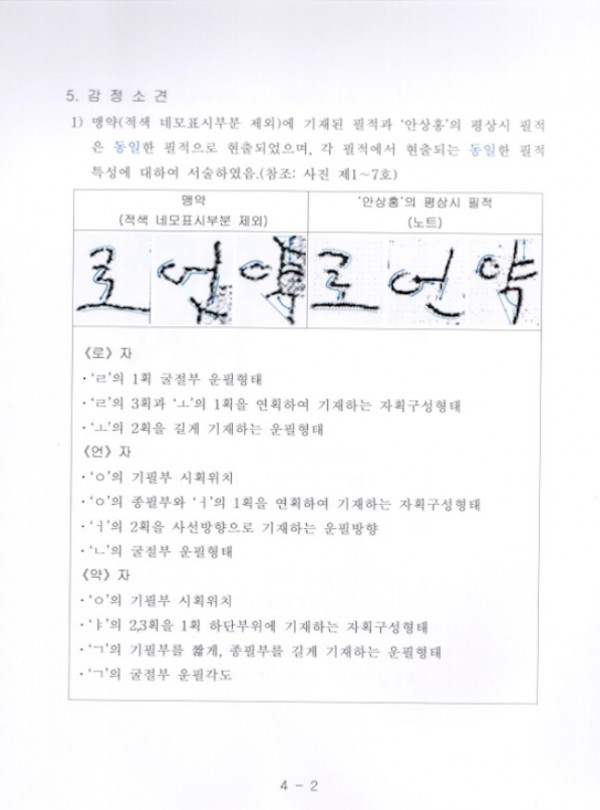 5. 감 정 소 견
1) 맹약(적색 네모표시부분 제외)에 기재된 필적과 '안상홍'의 평상시 필적
은 동일한 필적으로 현출되었으며, 각 필적에서 현출되는 동일한 필적
특성에 대하여 서술하였음.(참조: 사진 제1~7호)
맹약
(적색 네모표시부분 제외)
'안상홍'의 평상시 필적
(노트)
로 언 약 로 언 약
《로》 자
·'ㄹ'의 1획 굴절부 운필형태
·'ㄹ'의 3획과 'ㅗ'의 1획을 연획하여 기재하는 자획구성형태
·'ㅗ'의 2획을 길게 기재하는 운필형태
《언》 자
·'ㅇ'의 기필부 시획위치
·'ㅇ'의 종필부와 'ㅓ'의 1획을 연획하여 기재하는 자획구성형태
·'ㅓ'의 2획을 사선방향으로 기재하는 운필방향
·'ㄴ'의 굴절부 운필형태
《약》 자
·'ㅇ'의 기필부 시획위치
·'ㅑ'의 2,3획을 1획 하단부위에 기재하는 자획구성형태
·'ㄱ'의 기필부를 짧게, 종필부를 길게 기재하는 운필형태
·'ㄱ'의 굴절부 운필각도
4 - 2